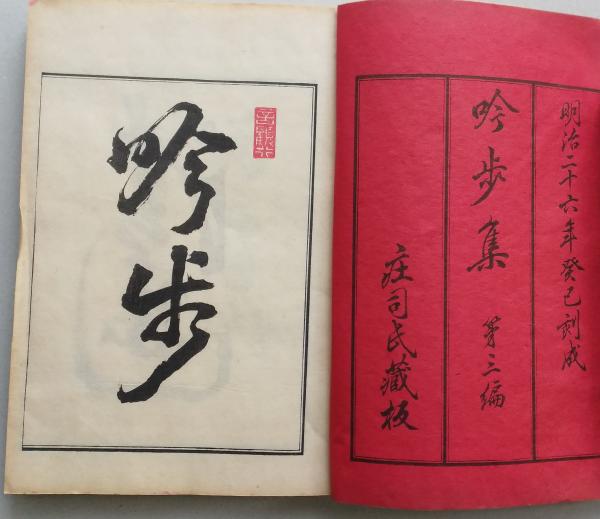 明治二十六年癸巳刻成
吟步集 第三編
庄司氏藏板
吟步